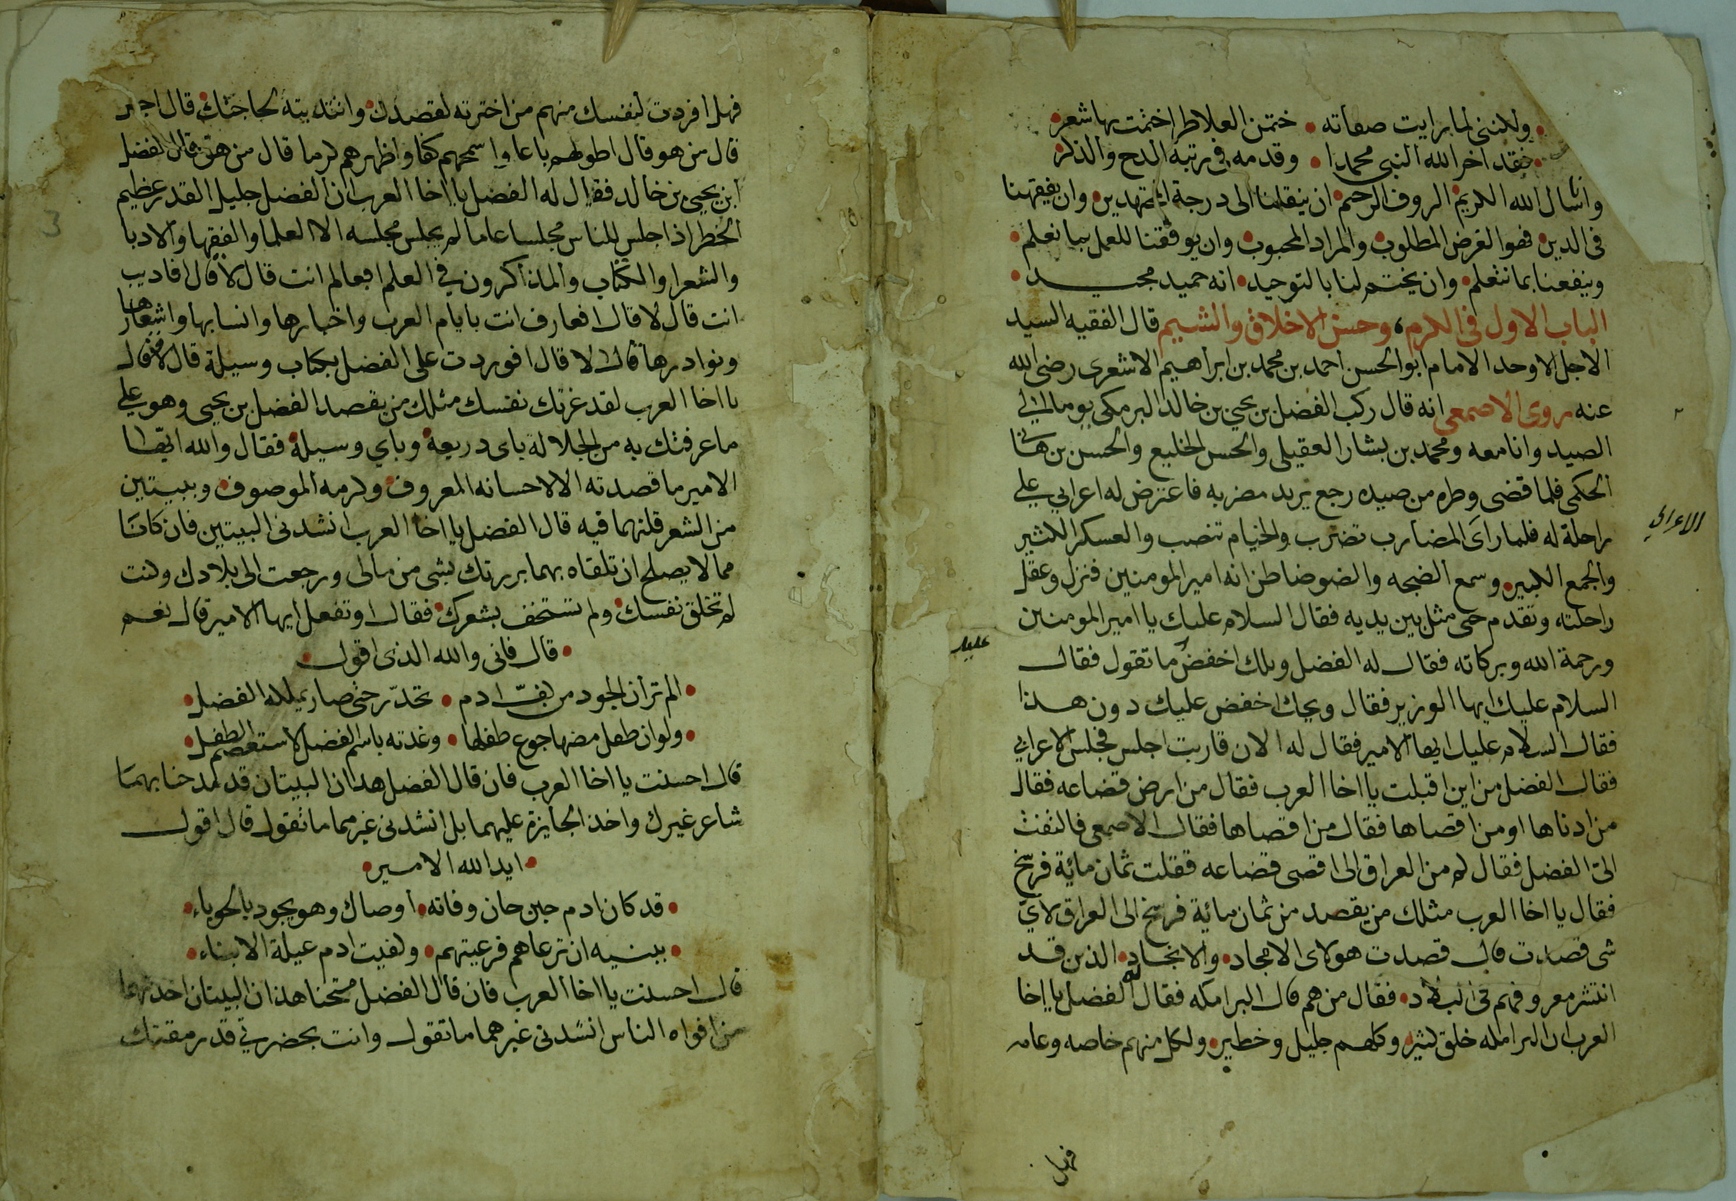 ولكنني لما رايت صفاته • ختمت العلا طرا ختمت بها شعر
فقد اخر الله النبي محمدا • وقدمه في رتبة المدح والذكر
واسال الله الكريم الروف الرحيم ان ينقلنا الى درجة المتهدين وان يفقهنا
في الدين فهو الغرض المطلوب والمراد المحبوب وان يوفقنا للعمل بما نعلم
وينفعنا بما نتعلم وان يختم لنا بالتوحيد انه حميد مجيد
الباب الاول في الكرم، وحسن الاخلاق والشيم قال الفقيه السيد
الاجل الاوحد الامام ابو الحسن احمد بن محمد بن ابراهيم الاشعري رضي الله
عنه روى الاصمعي انه قال ركب الفضل بن يحيى بن خالد البرمكي يوما الى
الصيد وانا معه ومحمد بن بشار العقيلي والحسن الخليع والحسن بن هاني
الحكمي فلما قضى وطره من صيده رجع يريد مضربه فاعترض له اعرابي على
راحلة له فلما راى المضارب تضرب والخيام تنصب والعسكر الكثير
والجمع الكبير وسمع الضجه والضوضا ظن انه امير المومنين فنزل وعقل
راحلته وتقدم حتى مثل بين يديه فقال السلام عليك يا امير المومنين
ورحمة الله وبركاته فقال له الفضل ويلك اخفض ما تقول فقال
السلام عليك ايها الوزير فقال ويحك اخفض عليك دون هذا
فقال السلام عليك ايها الامير فقال له الان قاربت اجلس فجلس الاعرابي
فقال الفضل من اين اقبلت يا اخا العرب فقال من ارض قضاعه فقال
من ادناها او من اقصاها فقال من اقصاها فقال الاصمعي فالتفت
الي الفضل فقال كم من العراق الى اقصى قضاعه فقلت ثمان ماية فرسخ
فقال يا اخا العرب مثلك من يقصد من ثمان ماية فرسخ الى العراق لاي
شي قصدت قال قصدت هولاي الامجاد والانجاد الذين قد
انتشر معروفهم في البلاد فقال من هم قال البرامكه فقال الفضل يا اخا
العرب ان البرامكه خلق كثير وكلهم جليل وخطير ولكل منهم خاصه وعامه
الاعرابي
عليك
فهل
فهل افردت لنفسك منهم من اخترته لقصدك وانتدبته لحاجتك قال اجل
قال من هو قال اطولهم باعا واسمحهم كفا واظهرهم كرما قال من هو قال الفضل
ابن يحيى بن خالد فقال له الفضل يا اخا العرب ان الفضل جليل القدر عظيم
الخطر اذا جلس للناس مجلسا عاما لم يجلس مجلسه الا العلما والفقها والادبا
والشعرا والكتاب والمذاكرون في العلم افعالم انت قال لا قال افاديب
انت قال لا قال افعارف انت بايام العرب واخبارها وانسابها واشعارها
ونوادرها قال لا قال افوردت على الفضل بكتاب وسيلة قال لا قال
يا اخا العرب لقد غرتك نفسك مثلك من يقصد الفضل بن يحيى وهو على
ما عرفتك به من الجلالة باي دريعة وباي وسيلة فقال والله ايها
الامير ما قصدته الا لاحسانه المعروف وكرمه الموصوف وببيتين
من الشعر قلتهما فيه قال الفضل يا اخا العرب انشدني البيتين فان كانتا
مما لا يصلح ان تلقاه بهما بررتك بشي من مالي ورجعت الى بلادك وكنت
لم تخلق نفسك ولم تستخف بشعرك فقال او تفعل ايها الامير قال نعم
• قال فاني والله الذي اقول
• الم تر ان الجود من لفت ادم • تحدر حتى صار يملكه الفضل •
• ولو ان طفل مضها جوع طفلها • وغدته باسم الفضل لاستعصم الطفل •
قال احسنت يا اخا العرب فان قال الفضل هدان البيتان قد مدحنا بهما
شاعر غيرك واخذ الجايزة عليهما بل انشدني غيرهما ما تقول قال اقول
• ايد الله الامير •
• قد كان ادم حين حان وفاته • اوصاك وهو يجود بالحوباء •
• ببنيه ان ترعاهم فرعيتهم • وكفيت ادم عيلة الابناء •
قال احسنت يا اخا العرب فان قال الفضل ممتحنا هذان البيتان اخذتهما
من افواه الناس انشدني غيرهما ما تقول وانت بحضرتي قد رمقتك